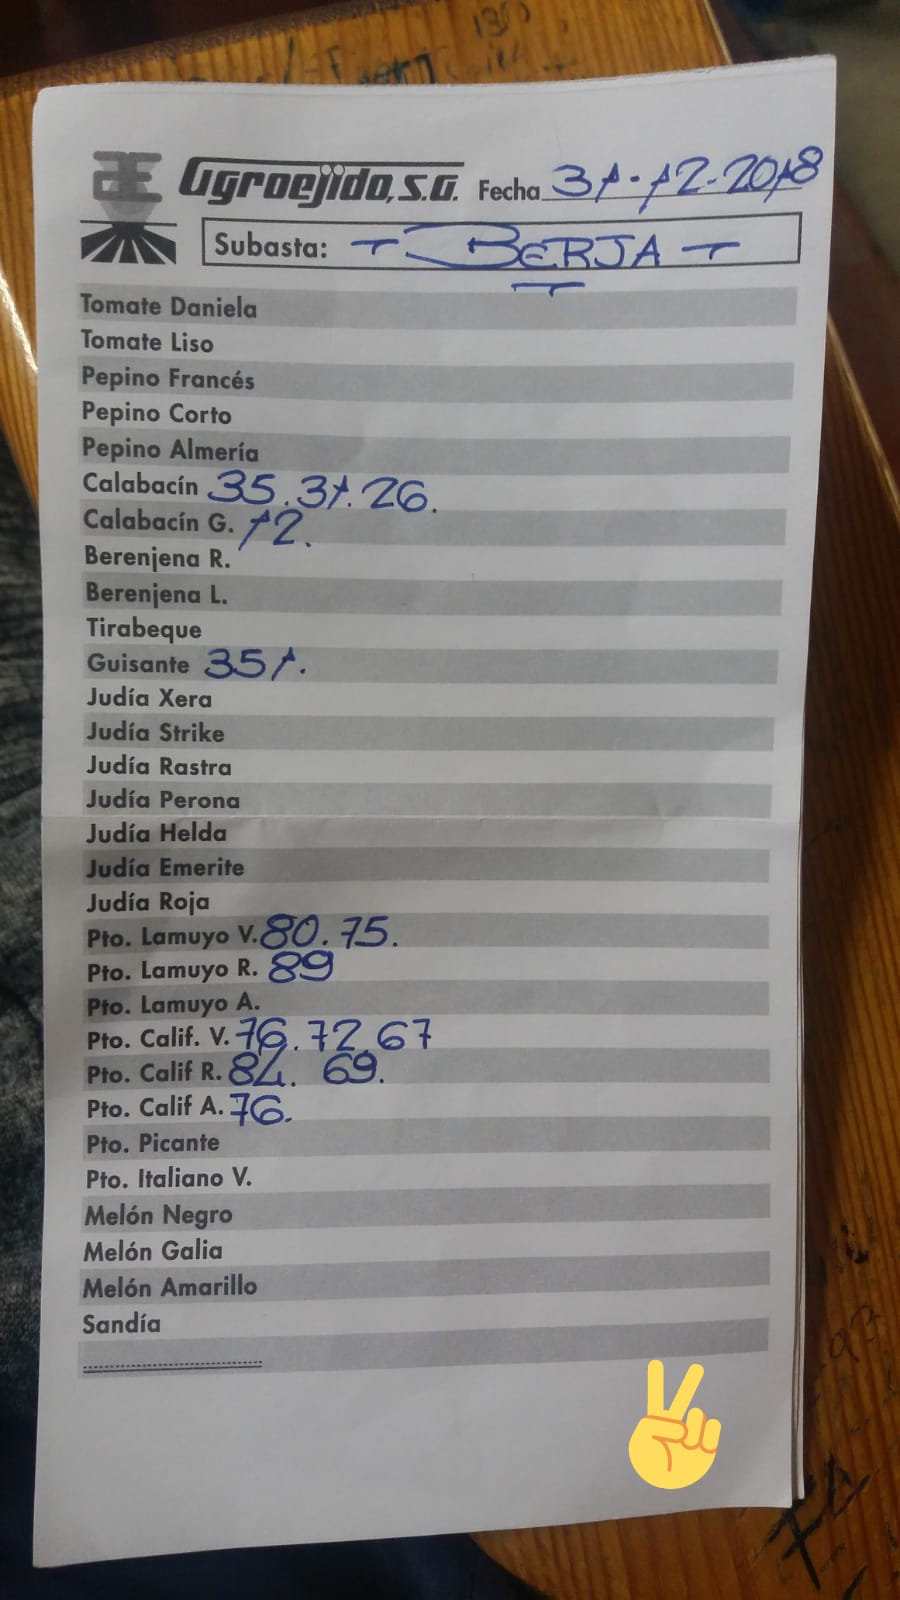 Agroejido, S.A. Fecha 31-12-2018
Subasta: - BERJA -
Tomate Daniela
Tomate Liso
Pepino Francés
Pepino Corto
Pepino Almería
Calabacín 35.31.26.
Calabacín G. 12.
Berenjena R.
Berenjena L.
Tirabeque
Guisante 351.
Judía Xera
Judía Strike
Judía Rastra
Judía Perona
Judía Helda
Judía Emerite
Judía Roja
Pto. Lamuyo V. 80.75.
Pto. Lamuyo R. 89
Pto. Lamuyo A.
Pto. Calif. V. 76.72.67
Pto. Calif R. 84. 69.
Pto. Calif A. 76.
Pto. Picante
Pto. Italiano V.
Melón Negro
Melón Galia
Melón Amarillo
Sandía